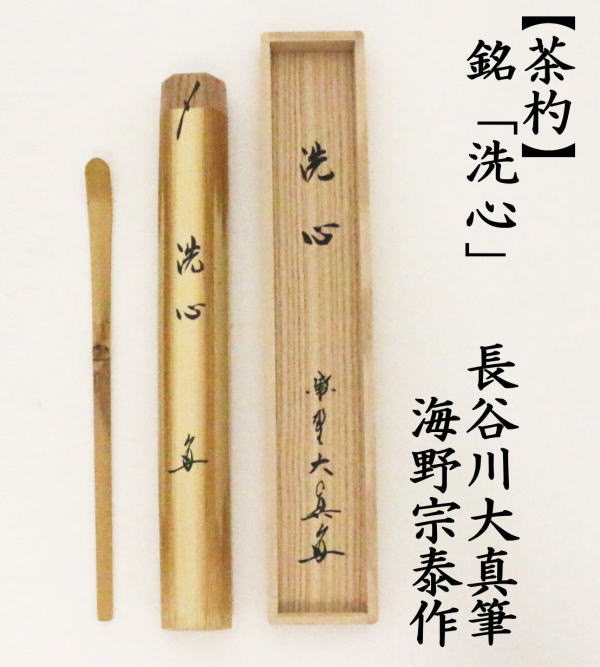 【茶杓】
銘「洗心」 長谷川大真筆
海野宗泰作
洗心
洗心